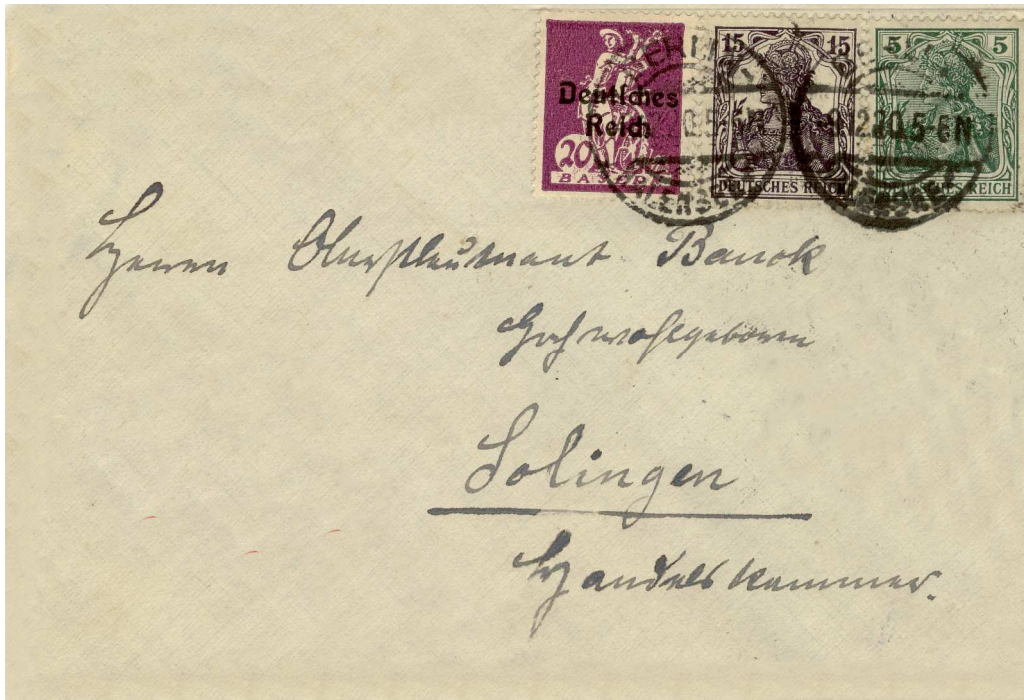 15 15 5 5
Deutsches
Reich
20
BAYERN
DEUTSCHES REICH DEUTSCHES REICH
BERLIN
5-6N
Herrn Oberstleutnant Banck
Hochwohlgeboren
Solingen
Handelskammer.